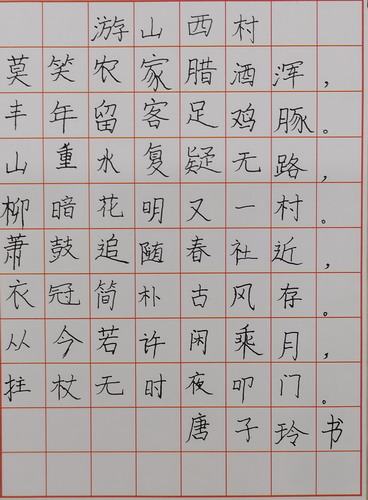 游山西村
莫笑农家腊酒浑，
丰年留客足鸡豚。
山重水复疑无路，
柳暗花明又一村。
萧鼓追随春社近，
衣冠简朴古风存。
从今若许闲乘月，
拄杖无时夜叩门。
唐子玲书